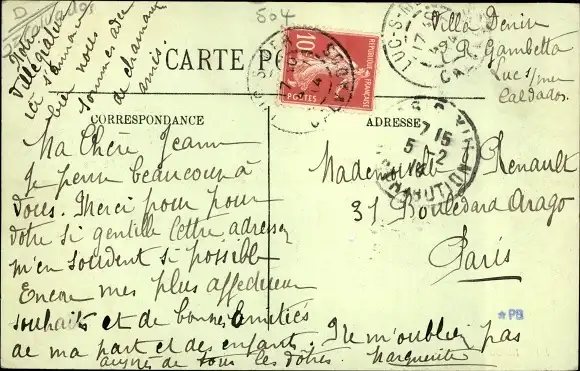 D
504
Notre
Villégiature
ici s'annonce
bien nous
sommes de
de charmants
amis.
Villa Denise
R. Gambetta
Luc s/mer
Calvados.
CARTE PO
RÉPUBLIQUE FRANÇAISE
10
POSTES
LUC-S-MER
CALVADOS
CORRESPONDANCE
ADRESSE
Ma Chère Jeanne
Je pense beaucoup à
vous. Merci pour
votre si gentille lettre adressez
m'en souvent si possible
Encore mes plus affectueux
souhaits et de bonnes amitiés
de ma part et des enfants.
auprès de tous les vôtres.
Ne m'oubliez pas
Marguerite
Mademoiselle Renault
31 Boulevard Arago
Paris
7 15
5 - 2
DISTRIBUTION
*PB